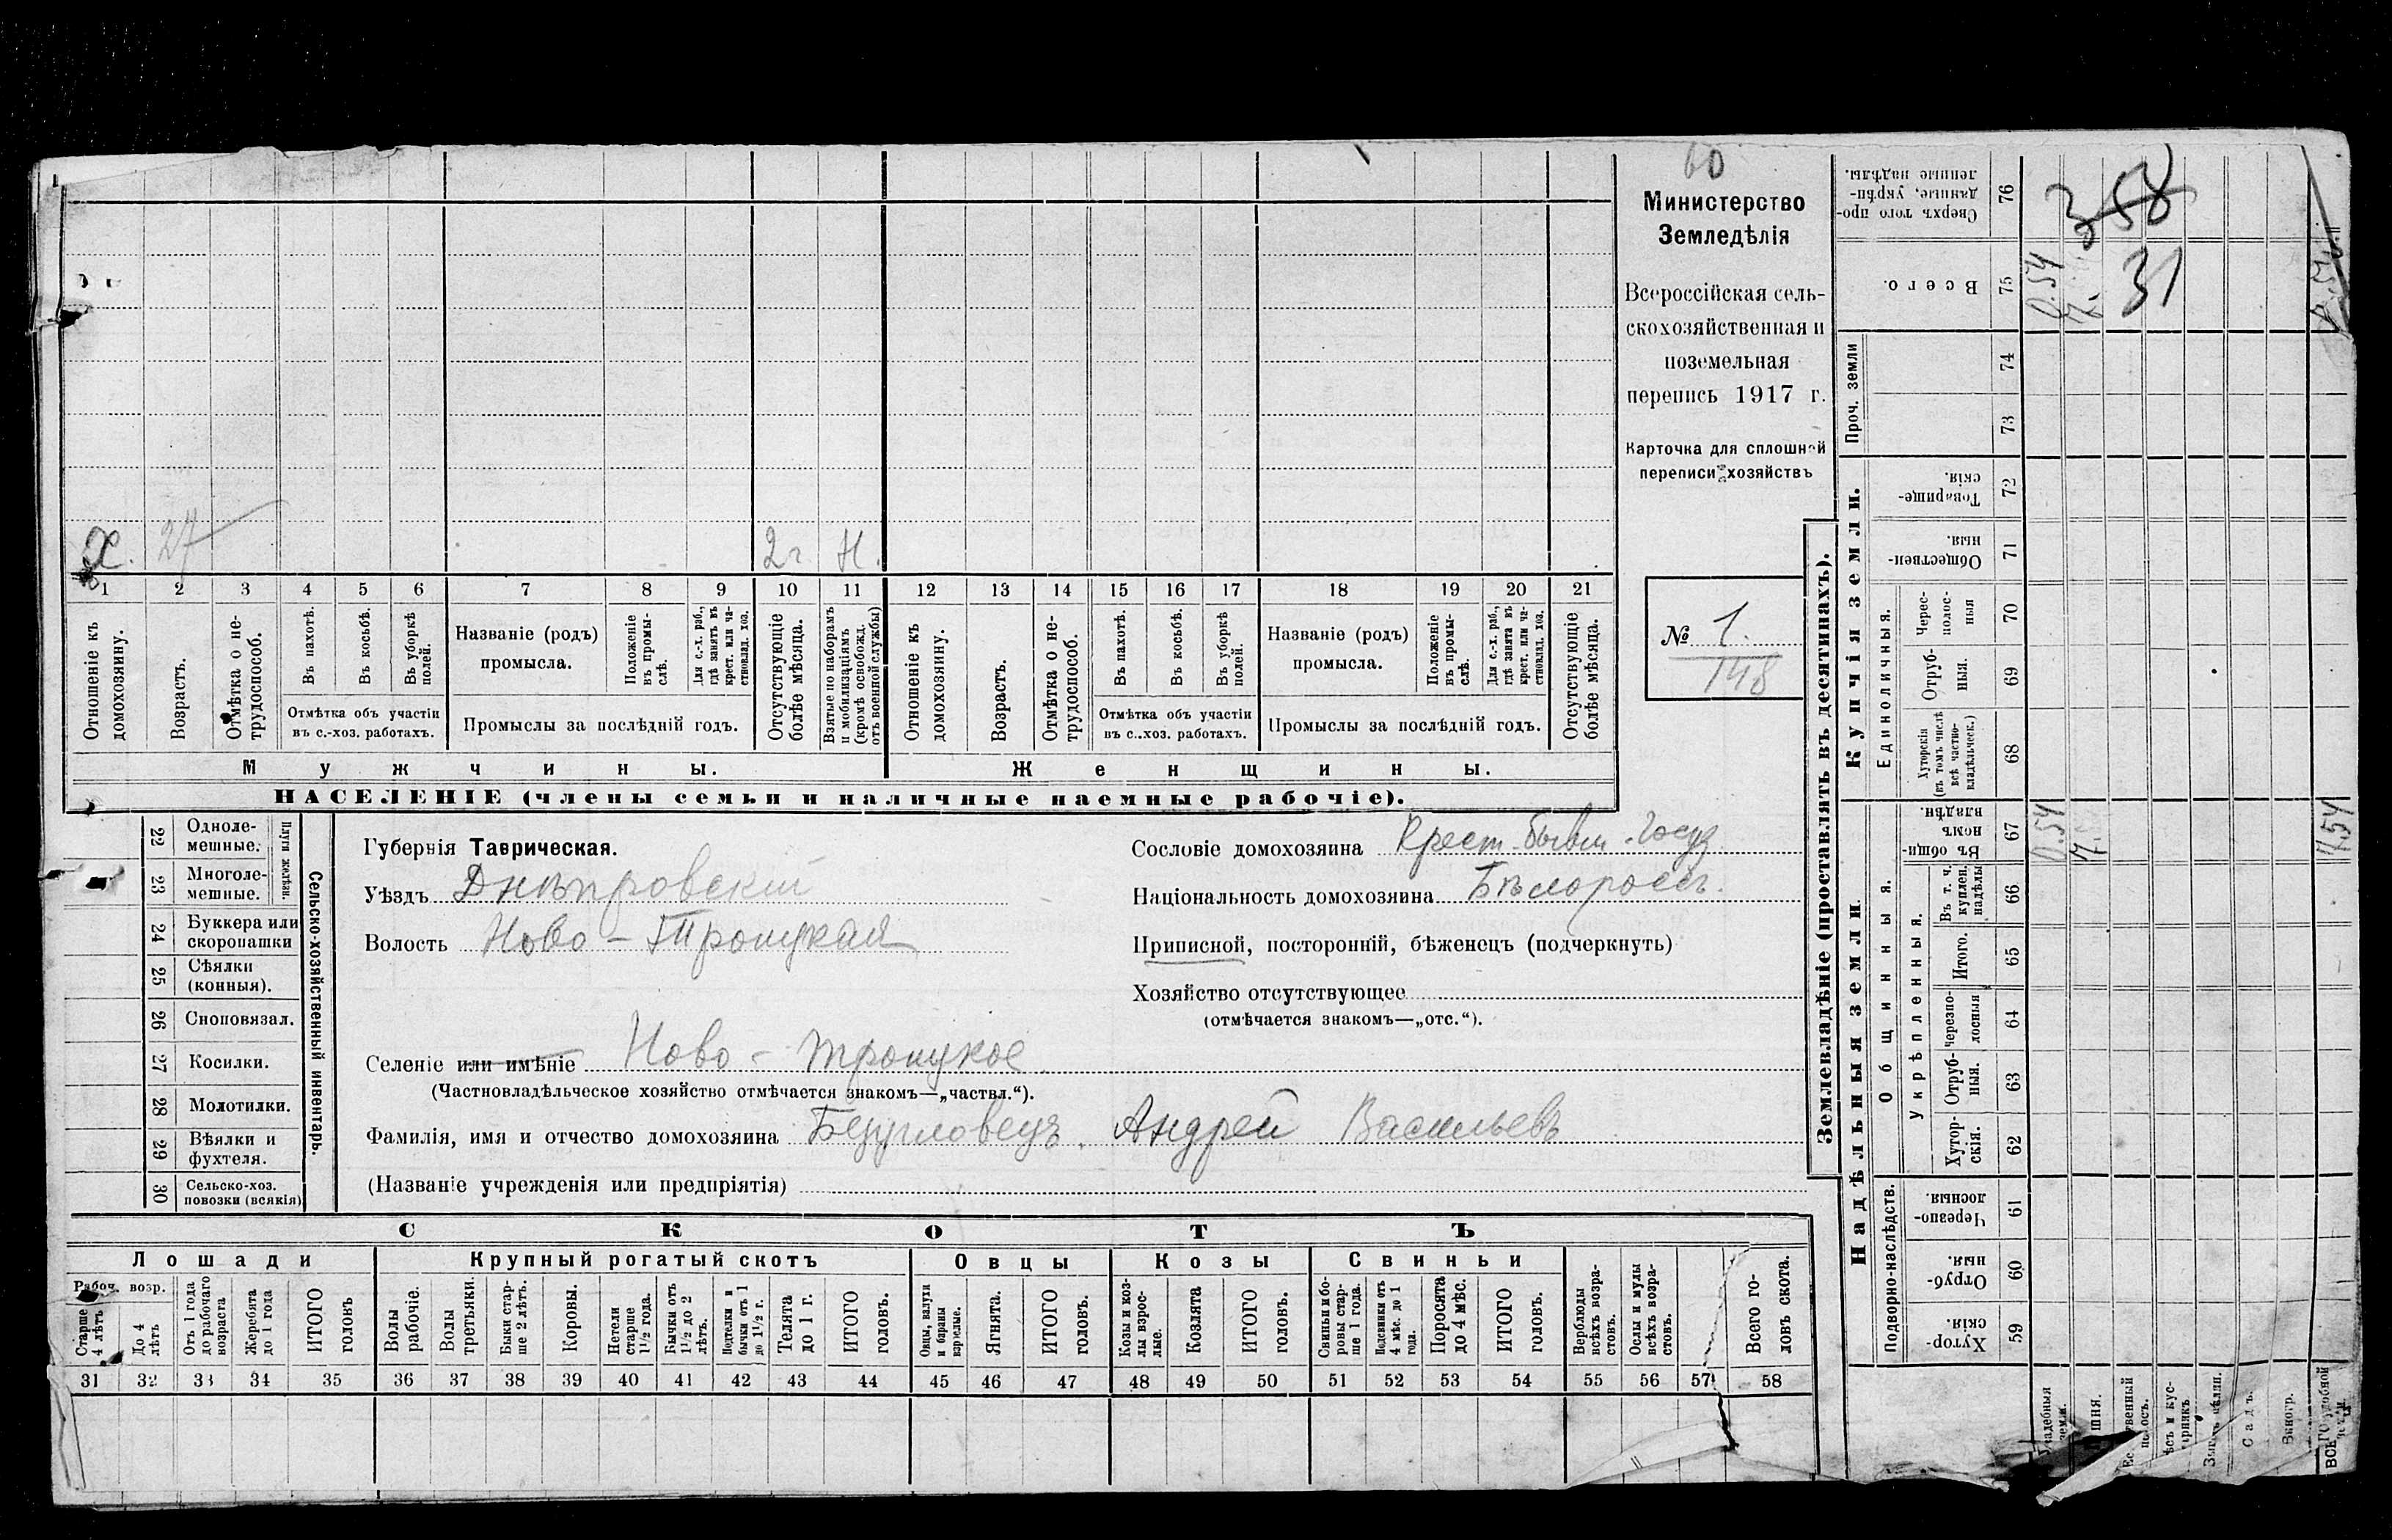 60
Министерство
Земледѣлія
Всероссійская сель-
скохозяйственная и
поземельная
перепись 1917 г.
Карточка для сплошной
переписи хозяйствъ
№ 1.
148
Х. 27 2 г. Н.
1 2 3 4 5 6 7 8 9 10 11 12 13 14 15 16 17 18 19 20 21
Отношеніе къ домохозяину.
Возрастъ.
Отмѣтка о не-трудоспособ.
Въ пахотѣ.
Въ косьбѣ.
Въ уборкѣ полей.
Отмѣтка объ участіи
въ с.-хоз. работахъ.
Названіе (родъ)
промысла.
Положеніе въ промы-слѣ.
Для с.-х. раб., гдѣ занятъ въ крест. или ча-стновлад. хоз.
Промыслы за послѣдній годъ.
Отсутствующіе болѣе мѣсяца.
Взятые по наборамъ и мобилизаціямъ (кромѣ освобожд. отъ военной службы)
Отношеніе къ домохозяину.
Возрастъ.
Отмѣтка о не-трудоспособ.
Въ пахотѣ.
Въ косьбѣ.
Въ уборкѣ полей.
Отмѣтка объ участіи
въ с.-хоз. работахъ.
Названіе (родъ)
промысла.
Положеніе въ промы-слѣ.
Для с.-х. раб., гдѣ занята въ крест. или ча-стновлад. хоз.
Промыслы за послѣдній годъ.
Отсутствующіе болѣе мѣсяца.
Мужчины.
Женщины.
НАСЕЛЕНІЕ (члены семьи и наличные наемные рабочіе).
Сельско-хозяйственный инвентарь.
Плуги желѣзн.
22 Одноле-мешные.
23 Многоле-мешные.
24 Буккера или скоропашки
25 Сѣялки (конныя).
26 Сноповязал.
27 Косилки.
28 Молотилки.
29 Вѣялки и фухтеля.
30 Сельско-хоз. повозки (всякія)
Губернія Таврическая.
Уѣздъ Днѣпровскій
Волость Ново-Троицкая
Селеніе или имѣніе Ново-Троицкое
(Частновладѣльческое хозяйство отмѣчается знакомъ—„частвл.“).
Фамилія, имя и отчество домохозяина Безугловецъ. Андрей Васильевъ
(Названіе учрежденія или предпріятія)
Сословіе домохозяина Крест. бывш. госуд.
Національность домохозяина Бѣлороссъ.
Приписной, посторонній, бѣженецъ (подчеркнуть)
Хозяйство отсутствующее
(отмѣчается знакомъ—„отс.“).
СКОТЪ
Лошади
Крупный рогатый скотъ
Овцы
Козы
Свиньи
Рабоч. возр.
Старше 4 лѣтъ
До 4 лѣтъ
Отъ 1 года до рабочаго возраста
Жеребята до 1 года
ИТОГО головъ
Волы рабочіе.
Волы третьяки.
Быки стар-ше 2 лѣтъ.
Коровы.
Нетели старше 1½ года.
Бычки отъ 1½ до 2 лѣтъ.
Подтелки и бычки отъ 1 до 1½ г.
Телята до 1 г.
ИТОГО головъ.
Овцы, валухи и бараны взрослые.
Ягнята.
ИТОГО головъ.
Козы и коз-лы взрос-лые.
Козлята
ИТОГО головъ.
Свиньи и бо-ровы стар-ше 1 года.
Подсвинки отъ 4 мѣс. до 1 года.
Поросята до 4 мѣс.
ИТОГО головъ.
Верблюды всѣхъ возра-стовъ.
Ослы и мулы всѣхъ возра-стовъ.
Всего го-ловъ скота.
31 32 33 34 35 36 37 38 39 40 41 42 43 44 45 46 47 48 49 50 51 52 53 54 55 56 57 58
Землевладѣніе (проставлять въ десятинахъ).
Надѣльныя земли
Купчія земли.
Проч. земли
Подворно-наслѣдств.
Общинныя.
Укрѣпленныя.
Единоличныя.
76 Сверхъ того про-данные, укрѣп-ленные надѣлы.
75 Всего.
74
73
72 Товарище-скія.
71 Обществен-ныя.
70 Черес-полос-ныя
69 Отруб-ныя.
68 Хуторскія (въ томъ числѣ всѣ частно-владѣльческ.)
67 Въ общи-номъ владѣн.
66 Въ т. ч. куплен. надѣлы
65 Итого.
64 черезпо-лосныя
63 Отруб-ныя.
62 Хутор-скія.
61 Черезпо-лосныя.
60 Отруб-ныя.
59 Хутор-скія.
358
31
0.54
7.
0.54
7.
7.54
Садъ.
Виногр.